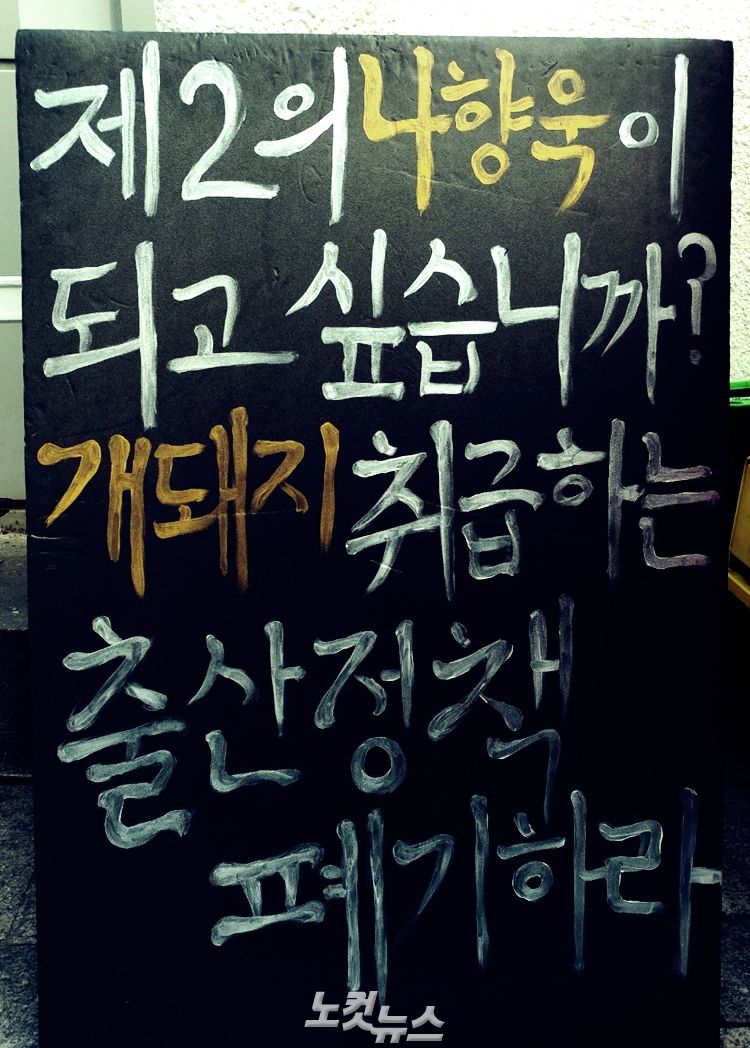 제2의 나향욱이
되고 싶습니까?
개돼지 취급하는
출산정책
폐기하라
노컷뉴스